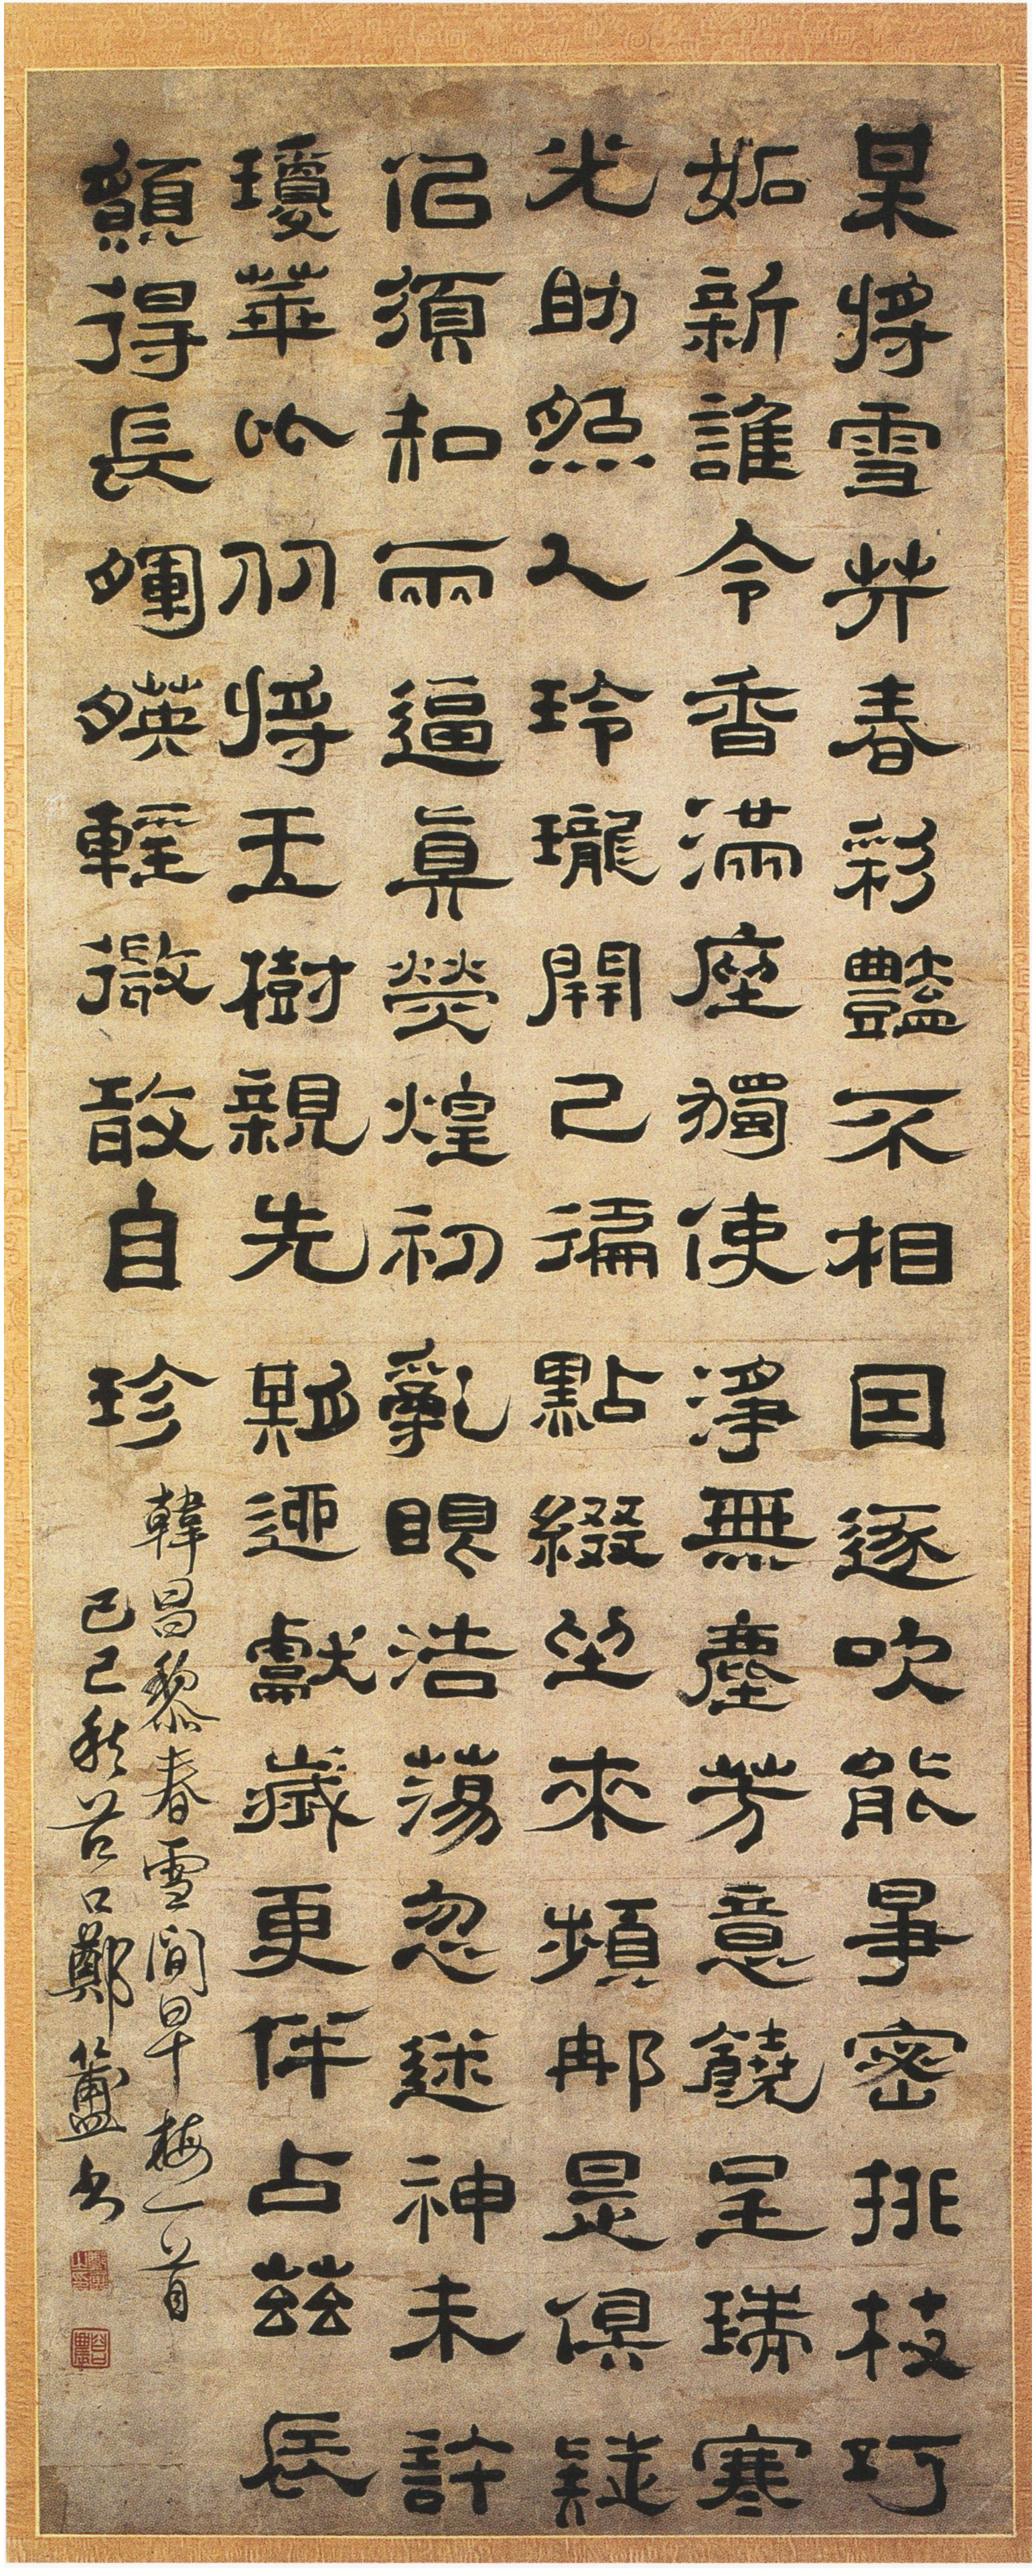 某將雪共春彩豔不相囙逐吹能爭密排枝巧
妬新誰令香滿座獨使淨無塵芳意饒呈瑞寒
光助照人玲瓏開已徧點綴坐來頻那是俱疑
佀須知兩逼真熒煌初亂眼浩蕩忽迷神未許
瓊華比从將玉樹親先期迎獻歲更伴占茲辰
願得長暉暎輕微敢自珍
韓昌黎春雪間早梅一首
己巳秋谷口鄭簠書